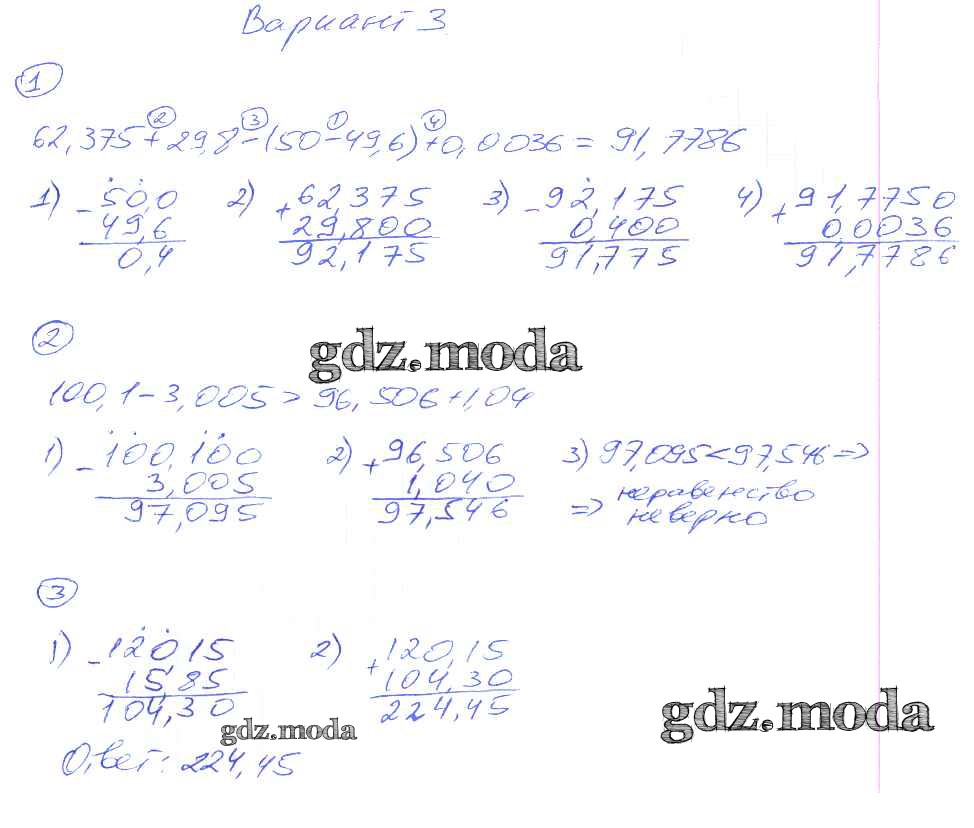 Вариант 3
1
62,375 + 29,8 - (50 - 49,6) + 0,0036 = 91,7786
2 3 1 4
1) - 50,0
49,6
0,4
2) + 62,375
29,800
92,175
3) - 92,175
0,400
91,775
4) + 91,7750
0,0036
91,7786
2
gdz.moda
100,1 - 3,005 > 96,506 + 1,04
1) - 100,100
3,005
97,095
2) + 96,506
1,040
97,546
3) 97,095 < 97,546 =>
=> неравенство
неверно
3
1) - 120,15
15,85
104,30
2) + 120,15
104,30
224,45
gdz.moda
gdz.moda
Ответ: 224,45